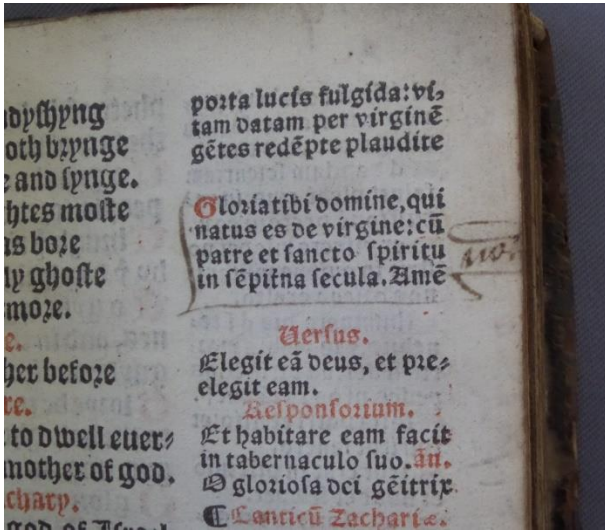 dyshyng
oth brynge
and synge.
htes moste
s bore
y ghoste
more.
e.
her before
re.
to dwell euer⸗
mother of god.
chary.
god of Israel
porta lucis fulgida: vi⸗
tam datam per virginē
gētes redēpte plaudite
Gloria tibi domine, qui
natus es de virgine: cū
patre et sancto spiritu
in sēpitna secula. Amē
Versus.
Elegit eā deus, et pre⸗
elegit eam.
Responsorium.
Et habitare eam facit
in tabernaculo suo. ān.
O gloriosa dei gēitrix
Canticū Zacharie.